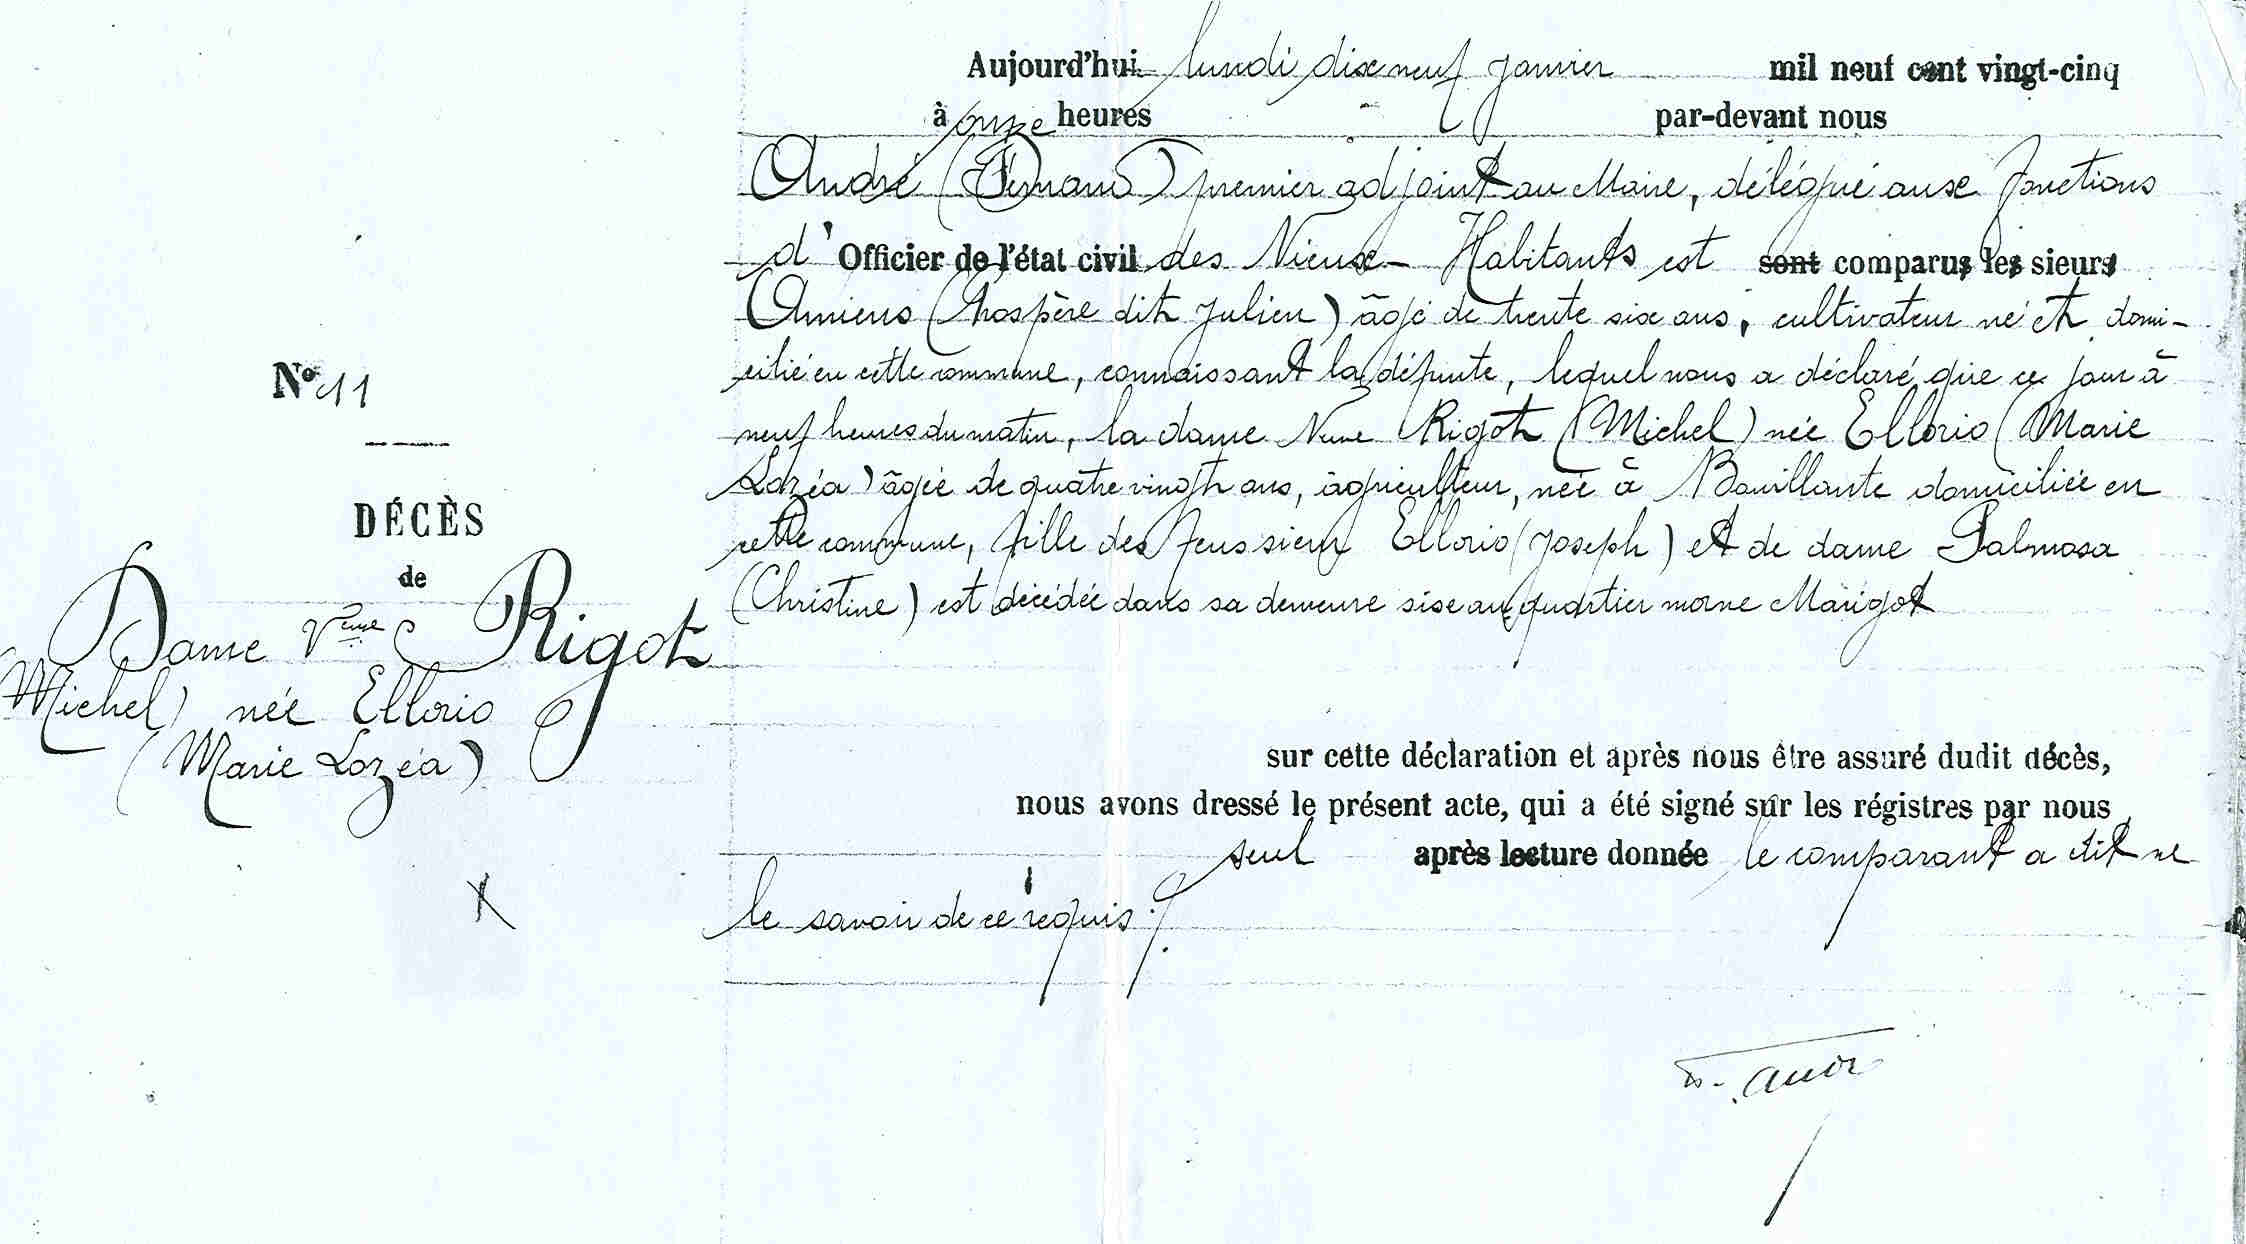 Aujourd'hui lundi dix neuf Janvier mil neuf cent vingt-cinq
à onze heures par-devant nous
André (Fernand) premier adjoint au Maire, délégué aux fonctions
d'Officier de l'état civil des Vieux-Habitants est sont comparus les sieurs
Amiens (Prospère dit Julien) âgé de trente six ans, cultivateur né et domi-
cilié en cette commune, connaissant la défunte, lequel nous a déclaré que ce jour à
neuf heures du matin, la dame Vuve Rigot (Michel) née Ellorio (Marie
Lozéa) âgée de quatre vingt ans, agriculteur, née à Bouillante domiciliée en
cette commune, fille des feus sieur Ellorio (Joseph) et de dame Palmosa
(Christine) est décédée dans sa demeure sise au quartier morne Marigot
N° 11
DÉCÈS
de
Dame Veuve Rigot
Michel) née Ellorio
(Marie Lozéa)
sur cette déclaration et après nous être assuré dudit décès,
nous avons dressé le présent acte, qui a été signé sur les régistres par nous
seul après lecture donnée le comparant a dit ne
le savoir de ce requis.
F. André